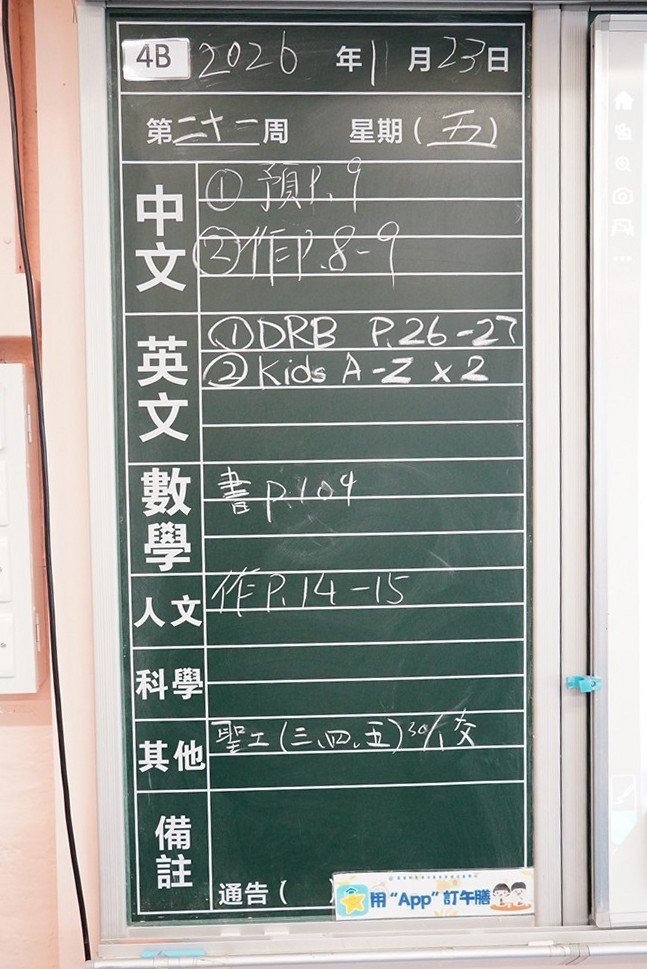 4B 2026 年 11 月 23 日
第二十一周 星期(五)
中文
① 預P.9
② 作P.8-9
英文
① DRB P.26-27
② Kids A-Z x 2
數學
書 P.109
人文
作P.14-15
科學
其他
聖工(三、四、五) 30/1交
備註
通告(
用 “App” 訂午膳